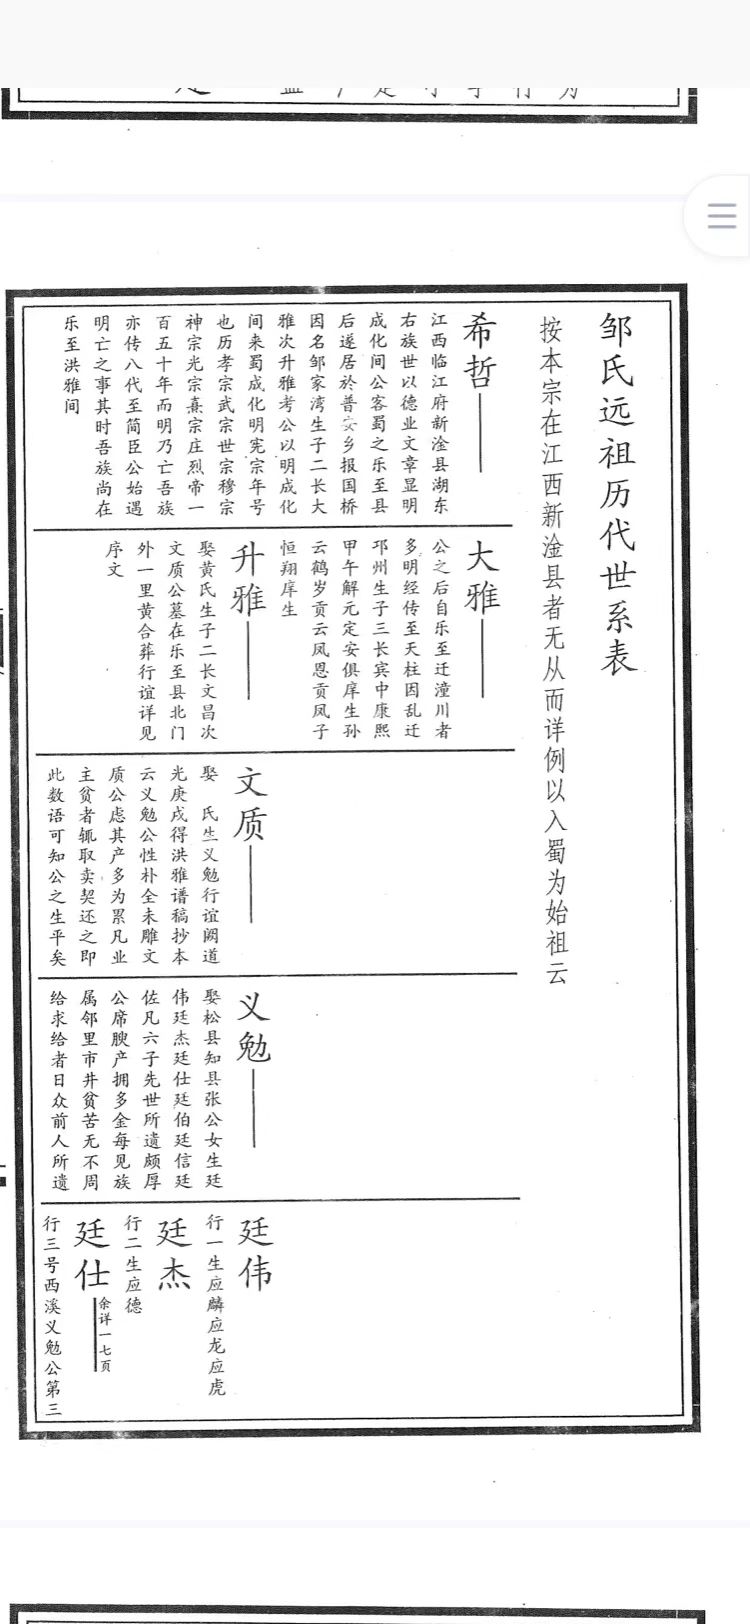 邹氏远祖历代世系表
按本宗在江西新淦县者无从而详例以入蜀为始祖云
希哲
江西临江府新淦县湖东
右族世以德业文章显明
成化间公客蜀之乐至县
后遂居於普安乡报国桥
因名邹家湾生子二长大
雅次升雅考公以明成化
间来蜀成化明宪宗年号
也历孝宗武宗世宗穆宗
神宗光宗熹宗庄烈帝一
百五十年而明乃亡吾族
亦传八代至简臣公始遇
明亡之事其时吾族尚在
乐至洪雅间
大雅
公之后自乐至迁潼川者
多明经传至天柱因乱迁
邛州生子三长宾中康熙
甲午解元定安俱庠生孙
云鹤岁贡云凤恩贡凤子
恒翔庠生
升雅
娶黄氏生子二长文昌次
文质公墓在乐至县北门
外一里黄合葬行谊详见
序文
文质
娶 氏生义勉行谊阙道
光庚戌得洪雅谱稿抄本
云义勉公性朴全未雕文
质公虑其产多为累凡业
主贫者辄取卖契还之即
此数语可知公之生平矣
义勉
娶松县知县张公女生廷
伟廷杰廷仕廷伯廷信廷
佐凡六子先世所遗颇厚
公席腴产拥多金每见族
属邻里市井贫苦无不周
给求给者日众前人所遗
廷伟
行一生应麟应龙应虎
廷杰
行二生应德
廷仕
余详一七页
行三号西溪义勉公第三